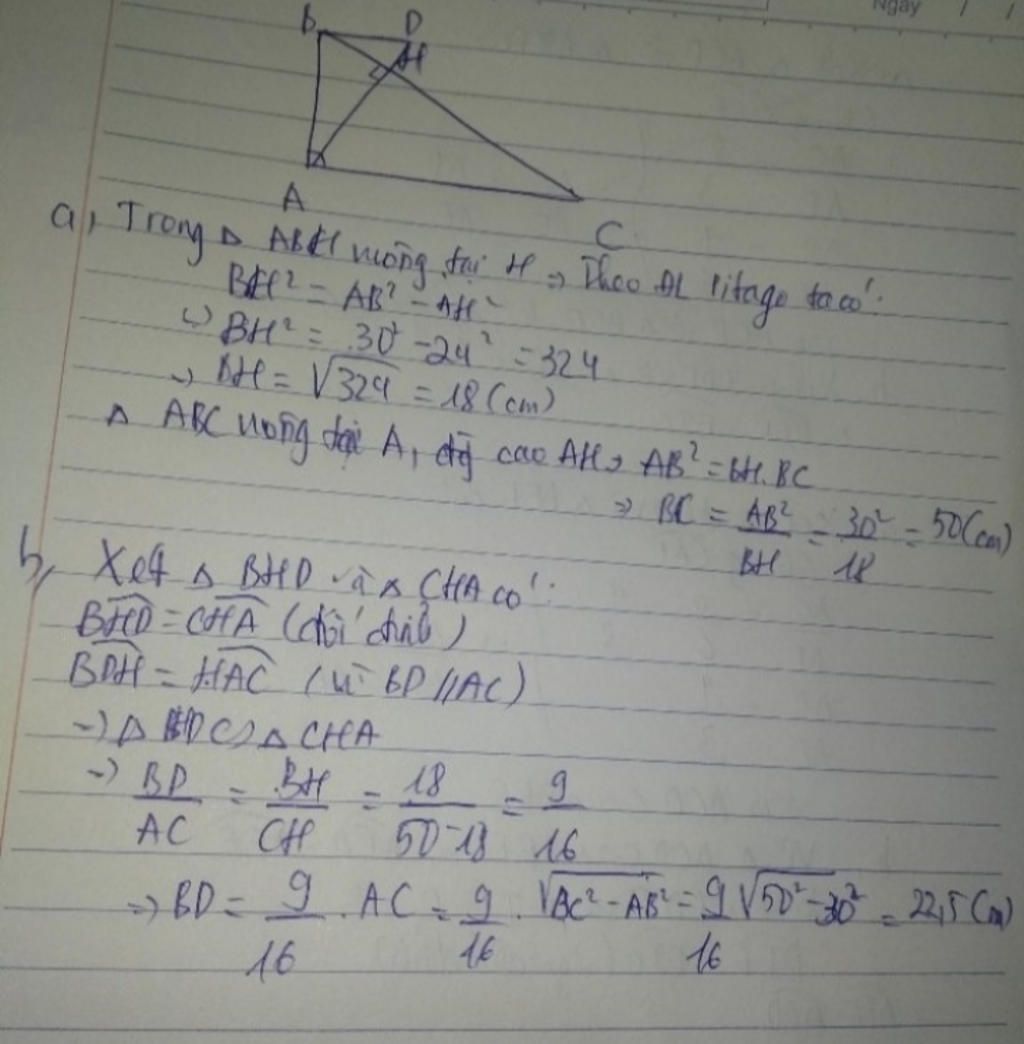 Ngày / /
B D
H
A
C
a, Trong Δ ABH vuông tại H => Theo ĐL Pitago ta có:
BH² = AB² - AH²
<=> BH² = 30² - 24² = 324
=> BH = √324 = 18 (cm)
Δ ABC vuông tại A, đg cao AH => AB² = BH.BC
=> BC = AB²/BH = 30²/18 = 50 (cm)
b, Xét Δ BHD và Δ CHA có:
BHD = CHA (đối đỉnh)
BDH = HAC (vì BD // AC)
=> Δ BHD ∽ Δ CHA
=> BD/AC = BH/CH = 18/50-18 = 9/16
=> BD = 9/16 . AC = 9/16 . √BC² - AB² = 9/16 √50² - 30² = 22,5 (cm)